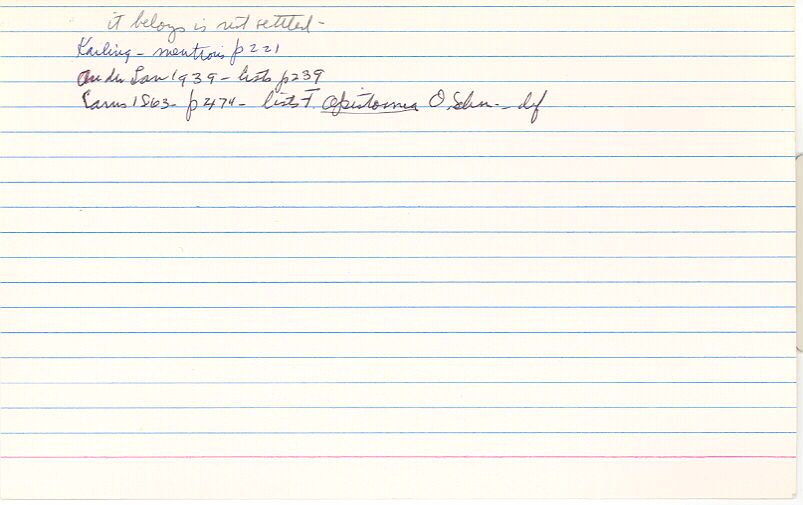 it belongs is not settled -
Karling - mentions p221
An der Lan 1939 - lists p239
Carus 1863 - p474 - lists F. Opistomea O. Schm. - df